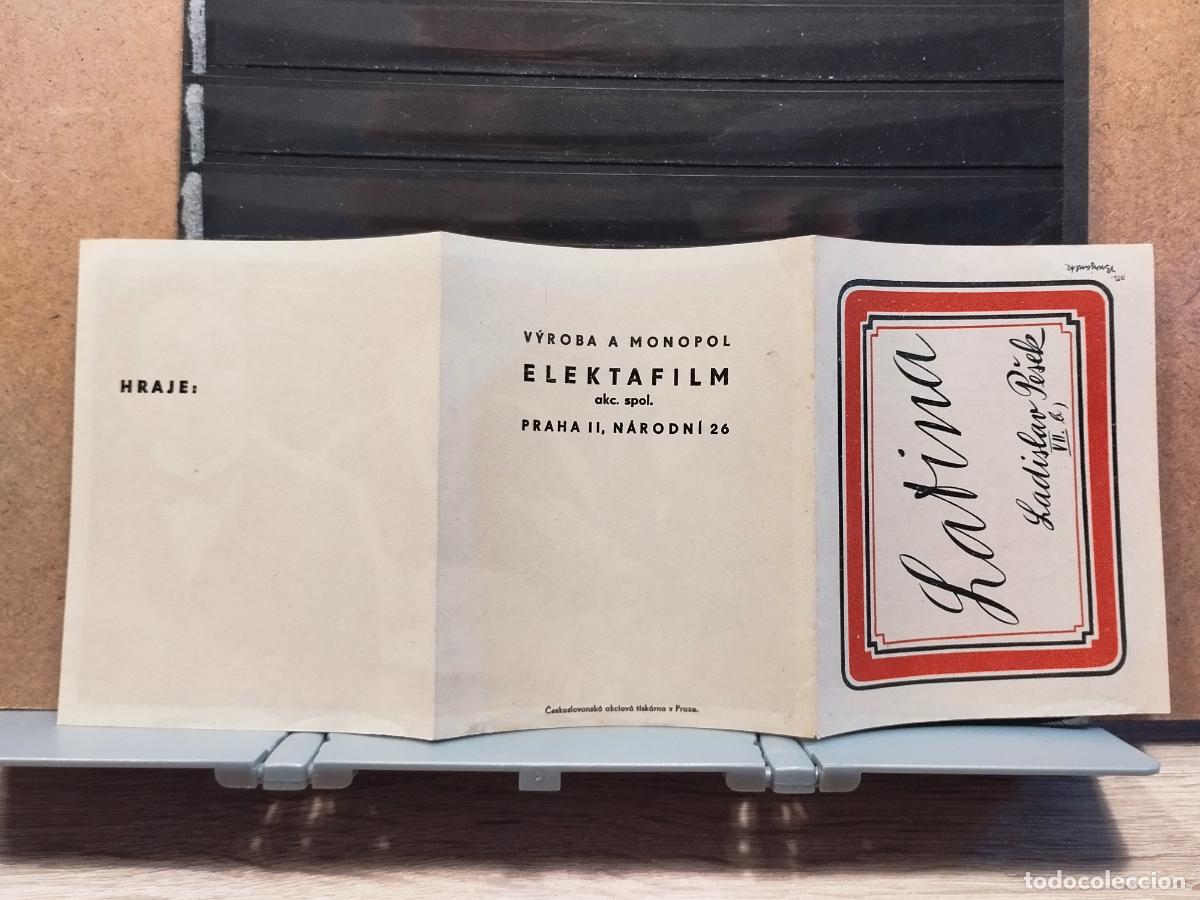 HRAJE:
VÝROBA A MONOPOL
ELEKTAFILM
akc. spol.
PRAHA II, NÁRODNÍ 26
Československá akciová tiskárna v Praze.
Latina
Ladislav Pešek
VII. b,
todocoleccion